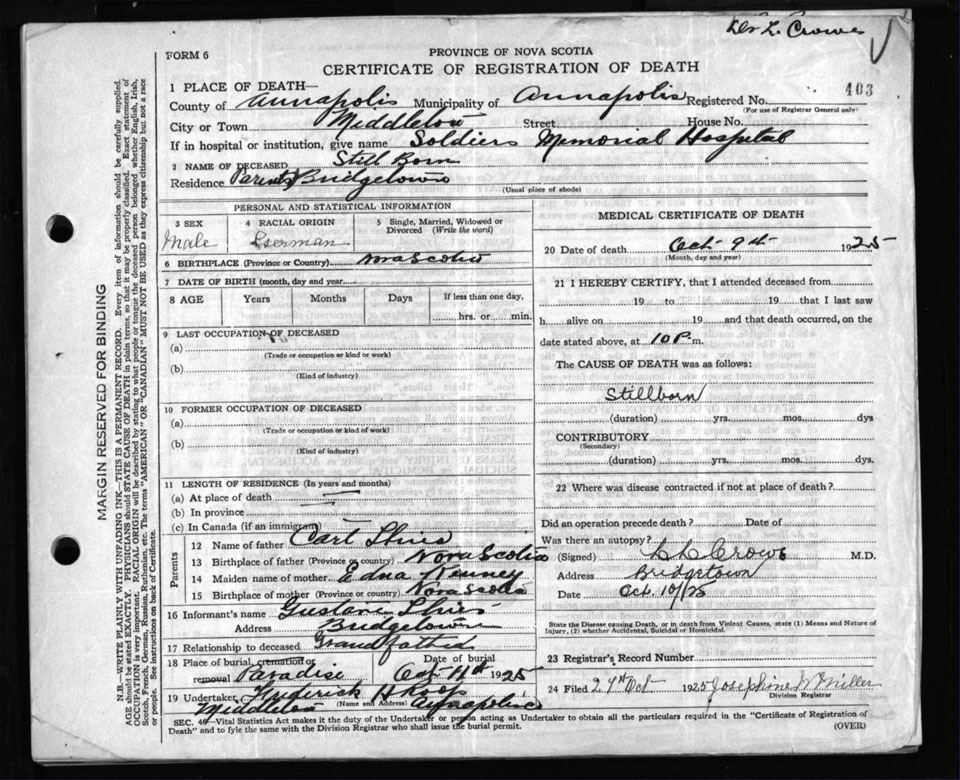 Dr L. Crowe
FORM 6
PROVINCE OF NOVA SCOTIA
CERTIFICATE OF REGISTRATION OF DEATH
1 PLACE OF DEATH—
403
County of Annapolis Municipality of Annapolis Registered No.
(For use of Registrar General only)
City or Town Middleton Street House No.
If in hospital or institution, give name Soldiers Memorial Hospital
2 NAME OF DECEASED Still Born
Residence Parents Bridgetown
(Usual place of abode)
PERSONAL AND STATISTICAL INFORMATION
3 SEX Male
4 RACIAL ORIGIN German
5 Single, Married, Widowed or Divorced (Write the word)
6 BIRTHPLACE (Province or Country) Nova Scotia
7 DATE OF BIRTH (month, day and year)
8 AGE Years Months Days If less than one day,
hrs. or min.
9 LAST OCCUPATION OF DECEASED
(a)
(Trade or occupation or kind or work)
(b)
(Kind of industry)
10 FORMER OCCUPATION OF DECEASED
(a)
(Trade or occupation or kind of work)
(b)
(Kind of industry)
11 LENGTH OF RESIDENCE (In years and months)
(a) At place of death
(b) In province
(c) In Canada (if an immigrant)
Parents
12 Name of father Carl
13 Birthplace of father (Province or country) Nova Scotia
14 Maiden name of mother Edna Kenney
15 Birthplace of mother (Province or Country) Nova Scotia
16 Informant's name Gustave
Address Bridgetown
17 Relationship to deceased Grandfather
18 Place of burial, cremation or removal Paradise Date of burial Oct 11th 1925
19 Undertaker Frederick H
(Name and Address)
Middleton Annapolis
MEDICAL CERTIFICATE OF DEATH
20 Date of death Oct 9th 1925
(Month, day and year)
21 I HEREBY CERTIFY, that I attended deceased from
19 to 19 that I last saw
h alive on 19 and that death occurred, on
date stated above, at 10 P.m.
The CAUSE OF DEATH was as follows:
Stillborn
(duration) yrs. mos. dys
CONTRIBUTORY
(Secondary)
(duration) yrs. mos. dys.
22 Where was disease contracted if not at place of death?
Did an operation precede death? Date of
Was there an autopsy?
(Signed) L L Crowe M.D.
Address Bridgetown
Date Oct. 10/25
State the Disease causing Death, or in death from Violent Causes, state (1) Means and Nature of
Injury, (2) whether Accidental, Suicidal or Homicidal.
23 Registrar's Record Number
24 Filed Oct 1925 Josephine Miller
Division Registrar
SEC. 40—Vital Statistics Act makes it the duty of the Undertaker or person acting as Undertaker to obtain all the particulars required in the "Certificate of Registration of
Death" and to file the same with the Division Registrar who shall issue the burial permit.
(OVER)
MARGIN RESERVED FOR BINDING
N.B.—WRITE PLAINLY WITH UNFADING INK—THIS IS A PERMANENT RECORD. Every item of information should be carefully supplied.
AGE should be stated EXACTLY. PHYSICIANS should STATE CAUSE OF DEATH in plain terms, so that it may be properly classified. Exact statement of
OCCUPATION is very important. RACIAL ORIGIN will be described by stating to what people or tongue the deceased person belonged whether English, Irish,
Scotch, French, German, Russian, Ruthenian, etc. The terms "AMERICAN" OR "CANADIAN" MUST NOT BE USED as they express citizenship but not a race
or people. See instructions on back of Certificate.